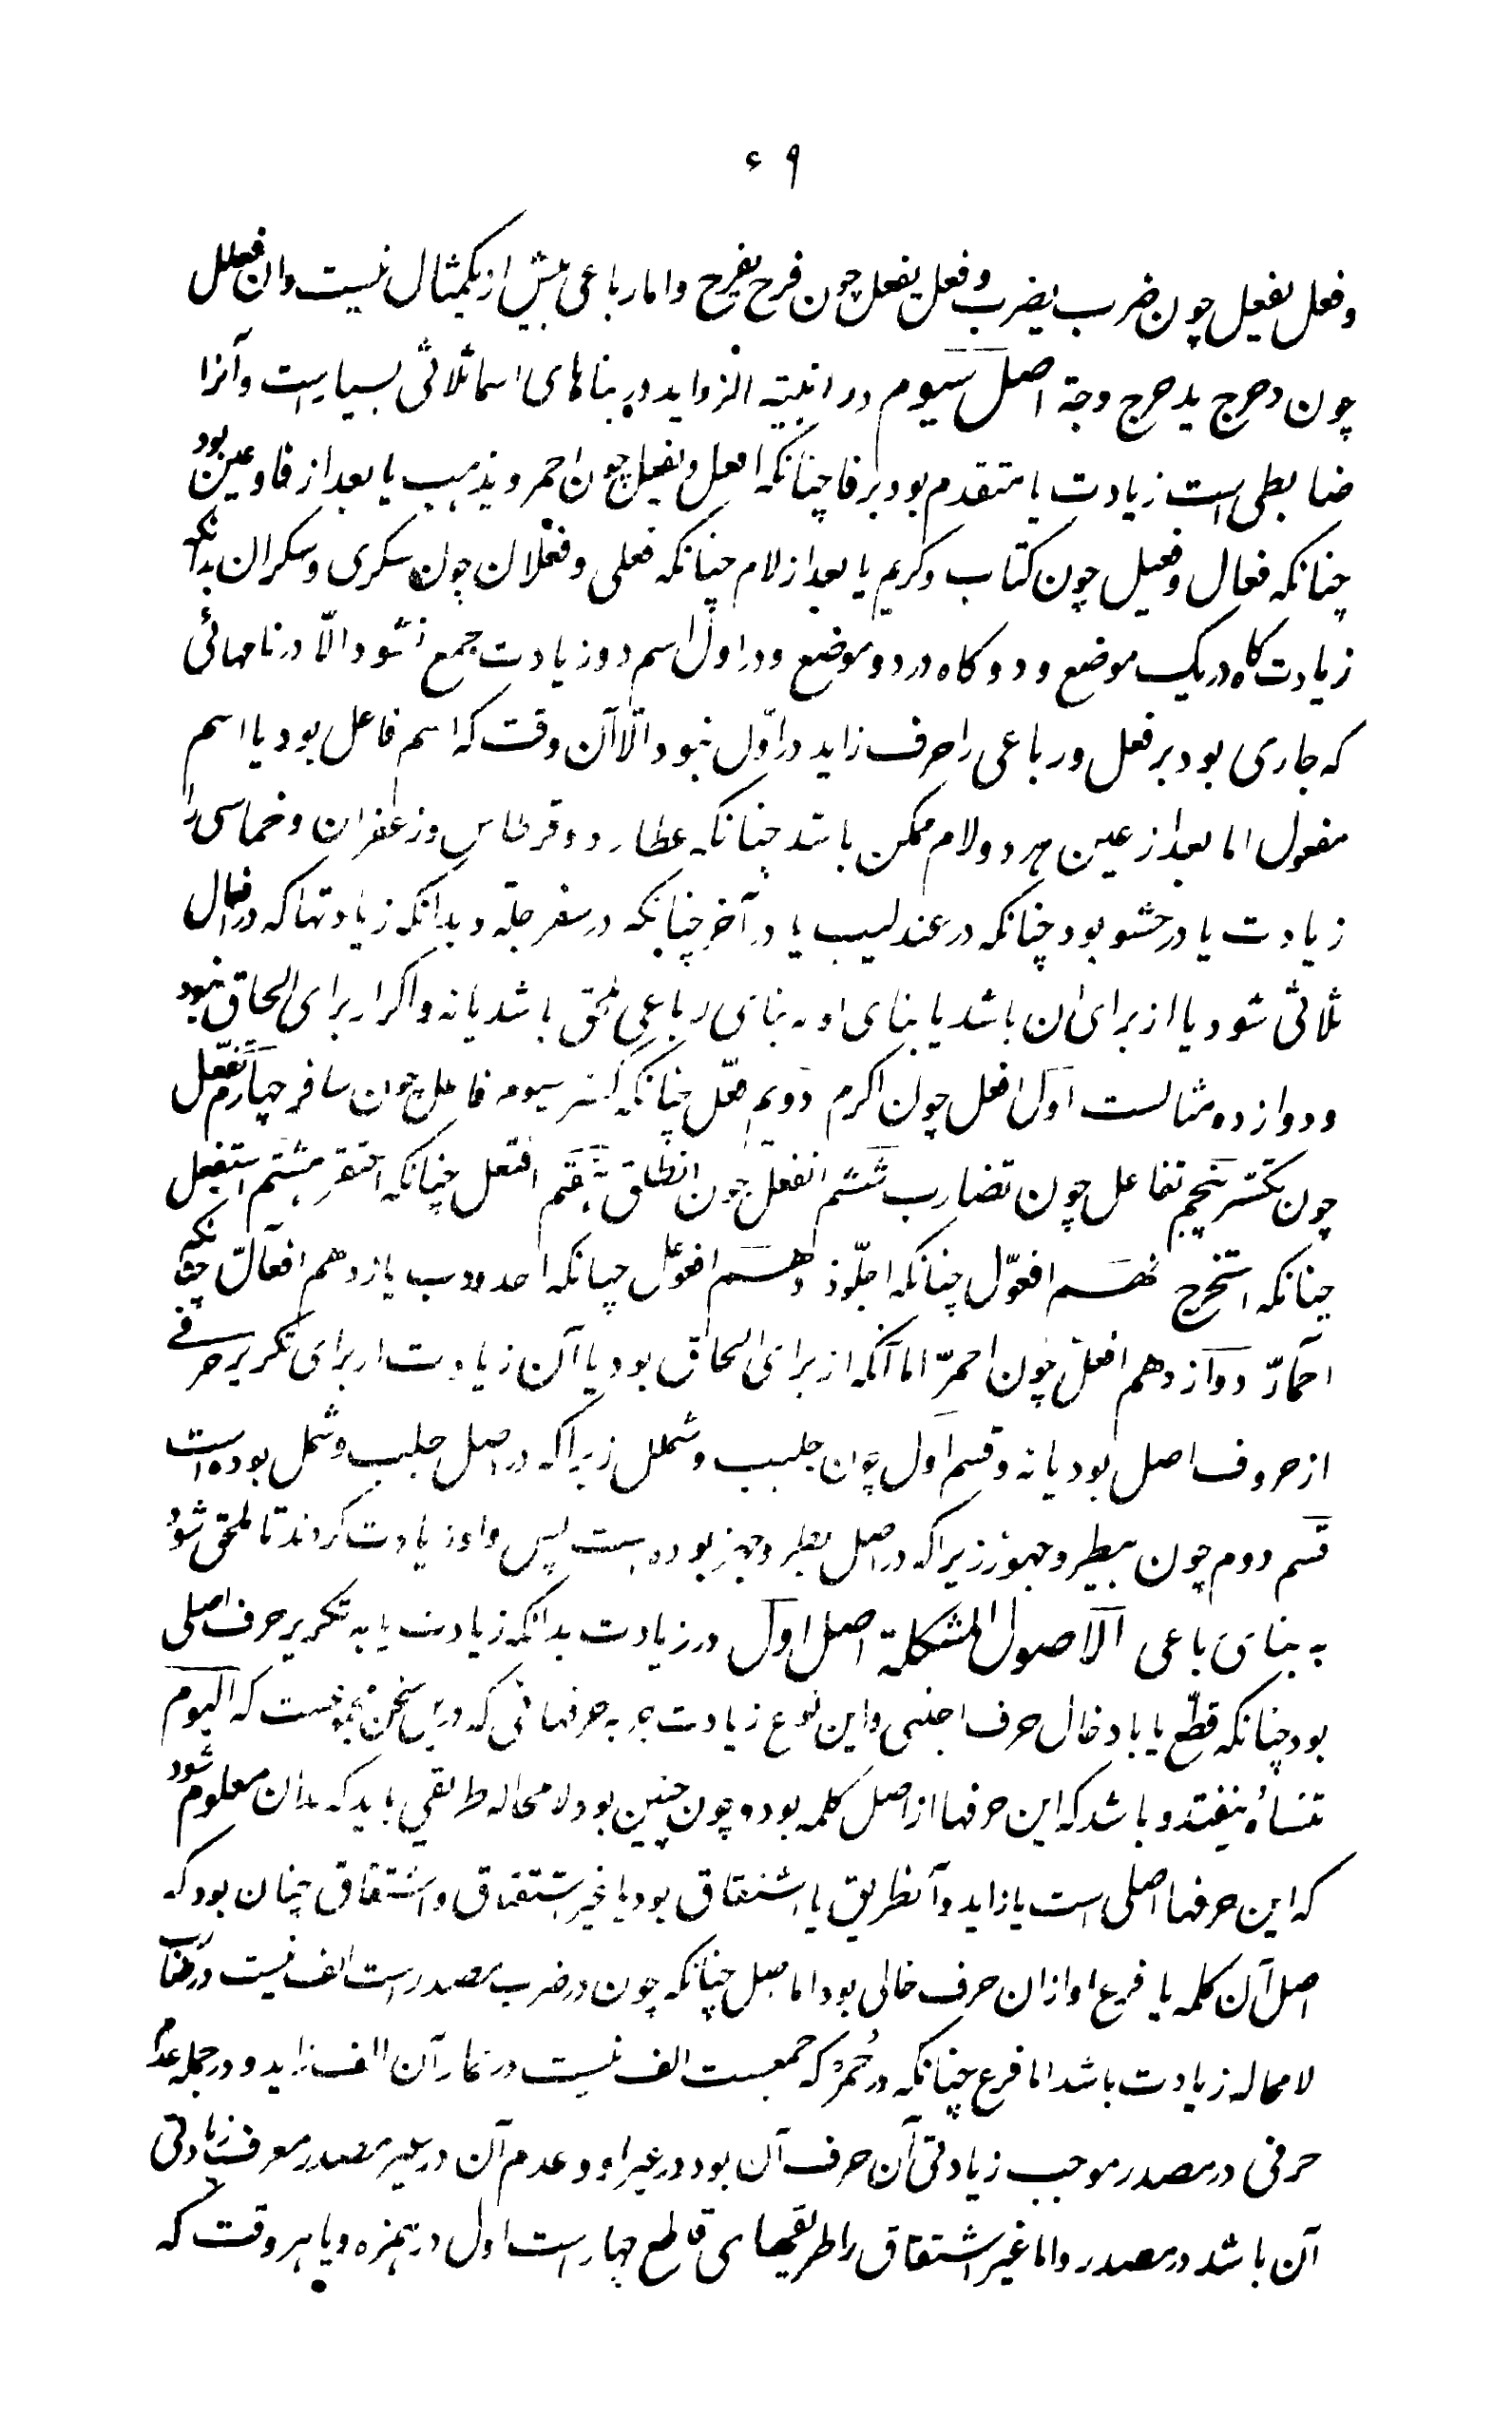 ۶۹
وفعل یفعیل چون ضرب یضرب وفعل یفعل چون فرح یفرح واما رباعی بیش از یکمثال نیست وان فعلل
چون دحرج یدحرج دحرجة اصل سیوم در ابنیته الزواید در بناهای اسما ثلاثی بسیاریست وآنرا
ضابطی است زیادت یا متقدم بود بر فا چنانکه افعل ویفعیل چون احمر ویذهب یا بعد از فا وعین بود
چنانکه فعال وفعیل چون کتاب وکریم یا بعد از لام چنانکه فعلی وفعلان چون سکری وسکران بدانکه
زیادت کاه در یک موضع ودو کاه در دو موضع ودر اول اسم دو زیادت جمع نشود الّا در نامهائی
که جاری بود بر فعل ورباعی را حرف زاید در اوّل نبود الّا آن وقت که اسم فاعل بود یا اسم
مفعول اما بعد از عین هر دو لام ممکن باشد چنانکه عطارد وقرطاس وزعفران وخماسی را
زیادت یا در حشو بود چنانکه در عندلیب یا در آخر چنانکه در سفرجلة وبدانکه زیادتها که در افعال
ثلاثی شود یا از برای ان باشد یا بنای او به بنای رباعی ملحق باشد یا نه واکر از برای الحاق نبود
ودوازده مثالست اول افعل چون اکرم دویم فعّل چنانکه کسّر سیوم فاعل چون سافر چهارم تفعّل
چون تکسّر پنجم تفاعل چون تضارب ششم انفعل چون انطلق هفتم افتعل چنانکه احتقر هشتم استفعل
چنانکه استخرج نهم افعوّل چنانکه اجلّوذ دهم افعوعل چنانکه احدودب یازدهم افعالّ چنانکه
احمارّ دوازدهم افعلّ چون احمرّ اما آنکه از برای الحاق بود یا آن زیادت از برای تکریر حرفی
از حروف اصل بود یا نه وقسم اول چون جلبب وشملل زیرا که در اصل جلب وشمل بوده است
قسم دوم چون بیطر وجهور زیرا که در اصل بطر وجهر بوده است پس واو زیادت کردند تا ملحق شود
به بنای باعی الاصول المشکلة اصل اول در زیادت بدانکه زیادت یا به تکریر حرف اصلی
بود چنانکه قطّع یا باد خال حرف اجنبی واین نوع زیادت جز به حرفهائی که درین سخن مجموعست که الیوم
تنساه نیفتد وباشد که این حرفها از اصل کلمه بود وچون چنین بود لامحاله طریقی باید که بدان معلوم شود
که این حرفها اصلی است یا زاید وآنطریق یا اشتقاق بود یا غیر اشتقاق واشتقاق چنان بود که
اصل آن کلمه یا فرع او ازان حرف خالی بود اما اصل چنانکه چون در ضرب مصدر است الف نیست در ضارب
لامحاله زیادت باشد اما فرع چنانکه در حُمُر که جمعست الف نیست در حمار آن الف زاید ودر جمله عدم
حرفی در مصدر موجب زیادتی آن حرف آن بود در غیر او وعدم آن در غیر مصدر معرف زیادتی
آن باشد در مصدر واما غیر اشتقاق را طریقهای قاطع چهار است اول در همزه ویا هر وقت که